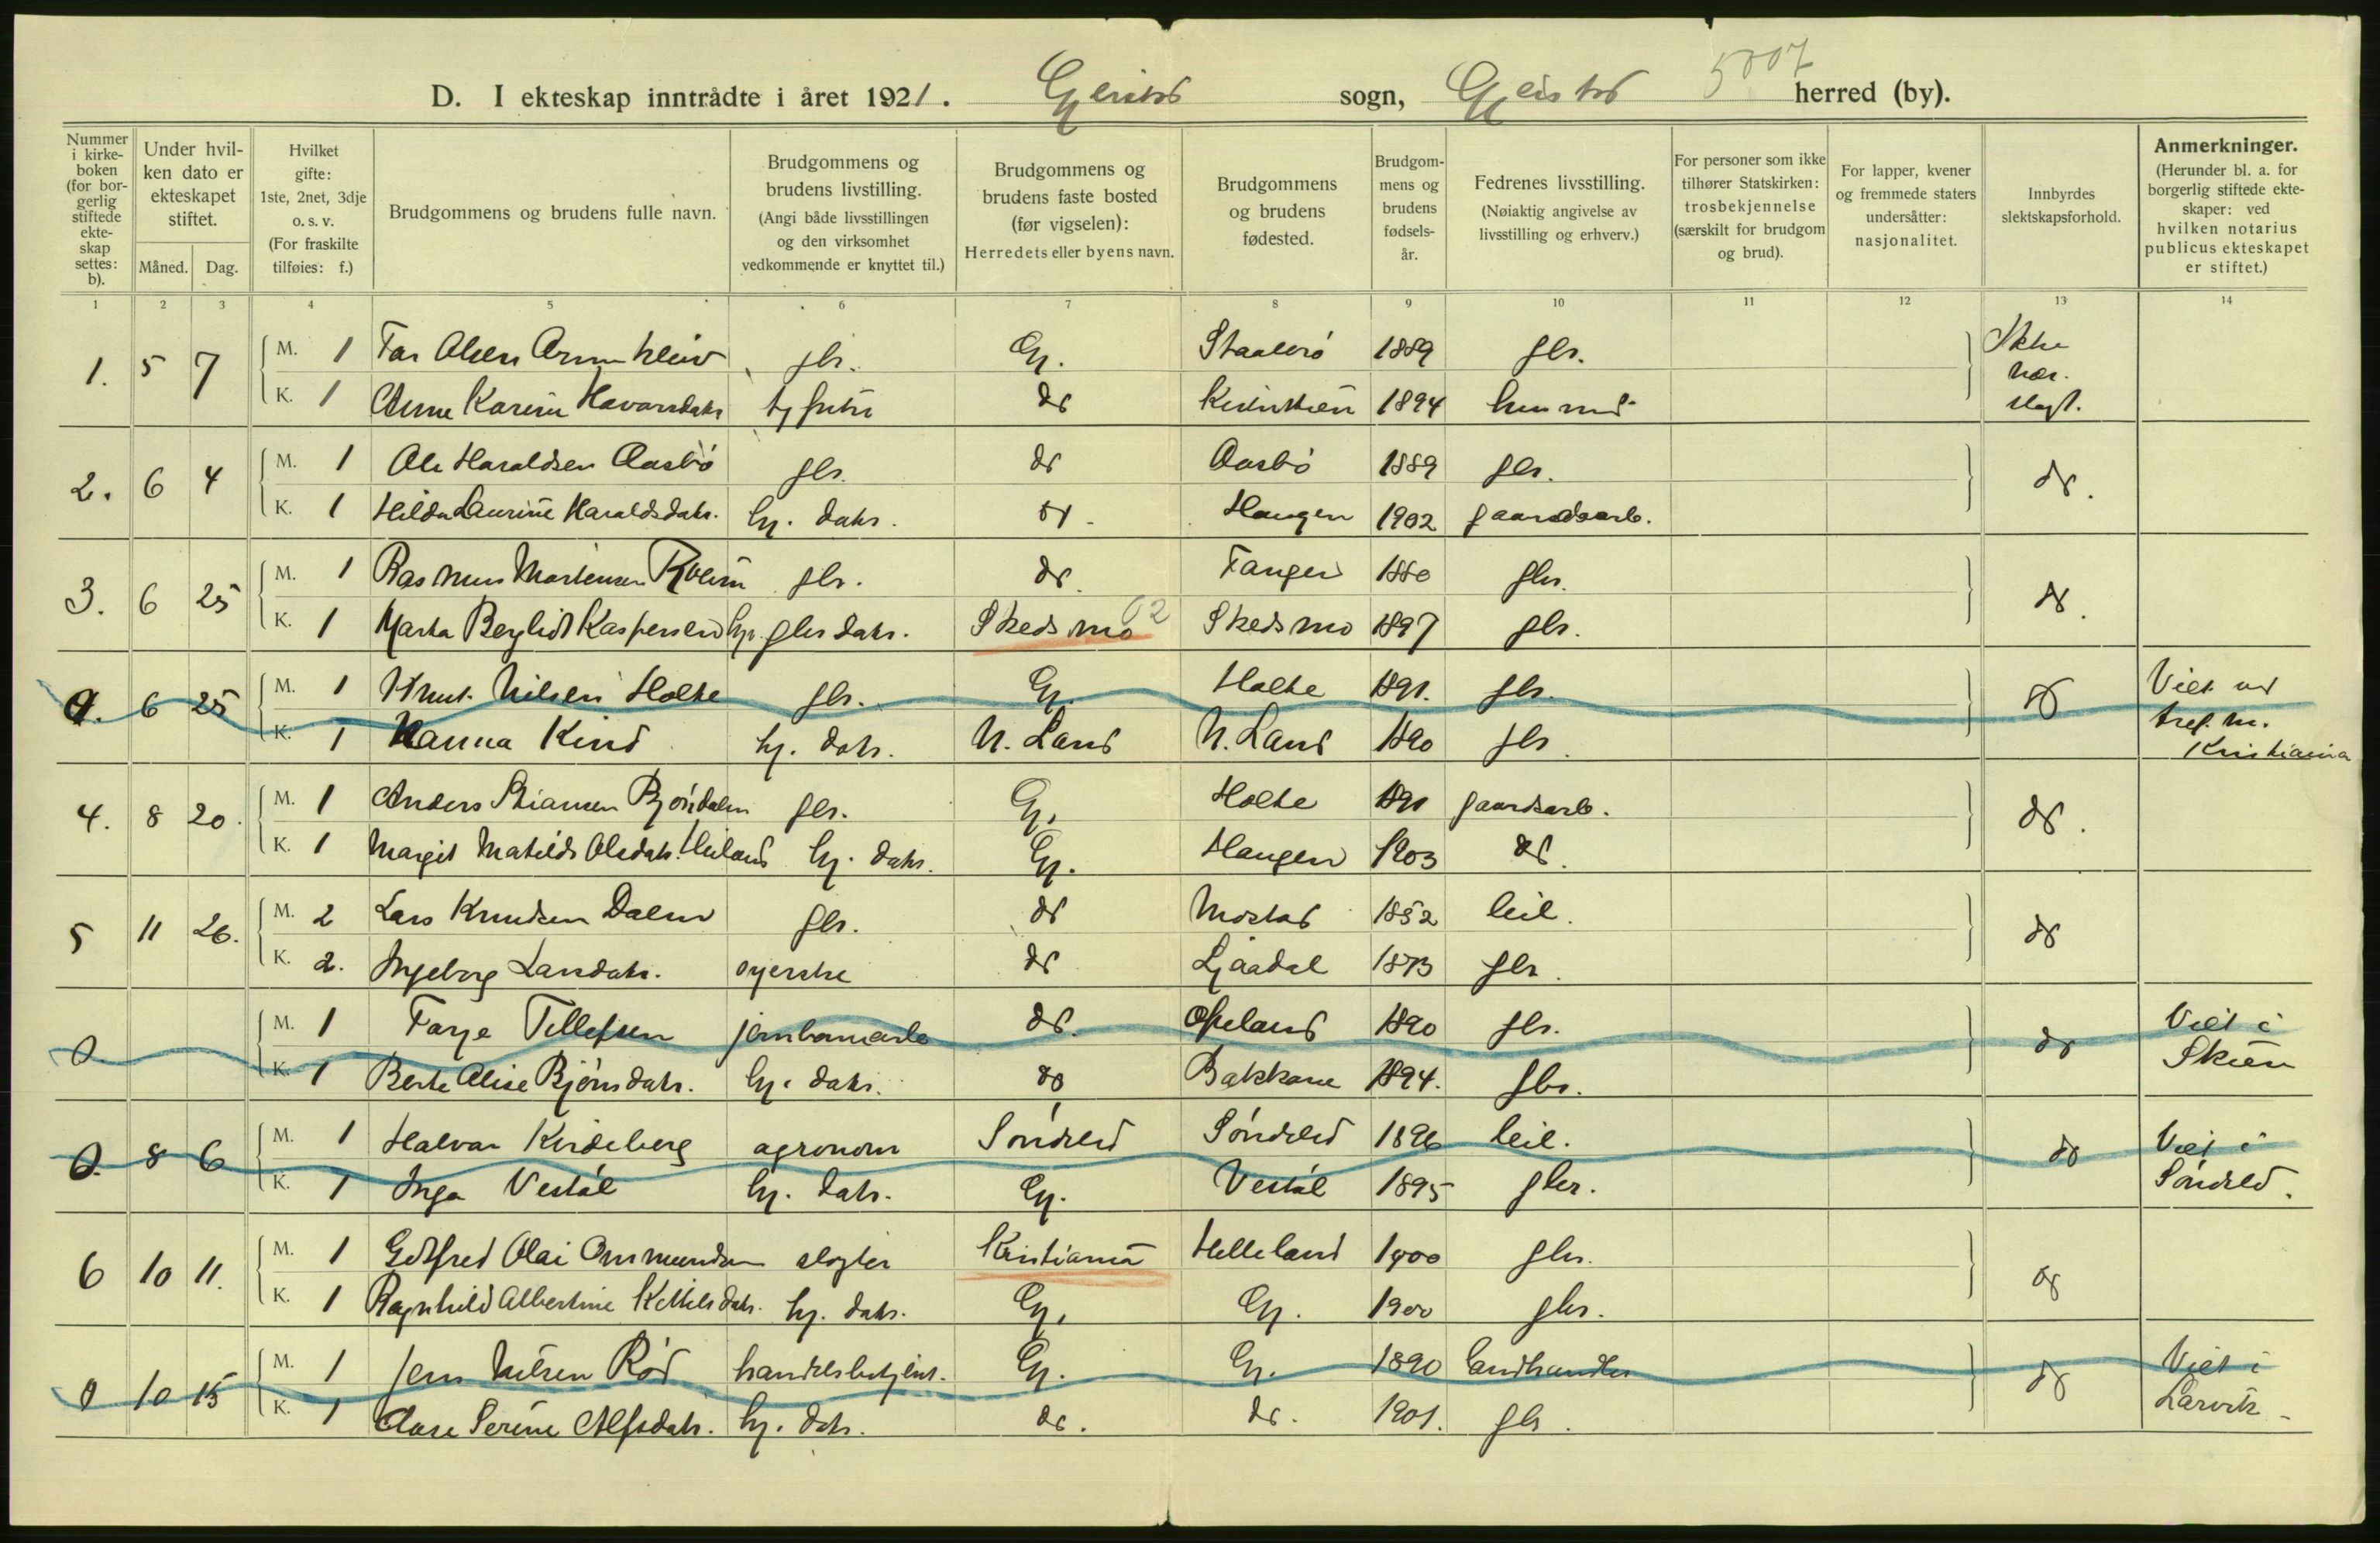 D. I ekteskap inntrådte i året 1921. Gjerstad sogn, Gjerstad herred (by). 5007
Nummer i kirkeboken (for borgerlig stiftede ekteskap settes: b).
Under hvilken dato er ekteskapet stiftet.
Måned. Dag.
Hvilket gifte: 1ste, 2net, 3dje o. s. v. (For fraskilte tilføies: f.)
Brudgommens og brudens fulle navn.
Brudgommens og brudens livstilling. (Angi både livsstillingen og den virksomhet vedkommende er knyttet til.)
Brudgommens og brudens faste bosted (før vigselen): Herredets eller byens navn.
Brudgommens og brudens fødested.
Brudgommens og brudens fødselsår.
Fedrenes livsstilling. (Nøiaktig angivelse av livsstilling og erhverv.)
For personer som ikke tilhører Statskirken: trosbekjennelse (særskilt for brudgom og brud).
For lapper, kvener og fremmede staters undersåtter: nasjonalitet.
Innbyrdes slektskapsforhold.
Anmerkninger. (Herunder bl. a. for borgerlig stiftede ekteskaper: ved hvilken notarius publicus ekteskapet er stiftet.)
1 2 3 4 5 6 7 8 9 10 11 12 13 14
1. 5 7 M. 1 Tar Olsen gbr. Gj. 1889 gbr. Ikke nær slegt.
K. 1 Anne Karine Havorsdatr do 1894
2. 6 4 M. 1 Ole Haraldsen Aasbø gbr. do Aasbø 1889 gbr. do.
K. 1 Hilda Laurine Haraldsdatr. hj. datr. do. Haugen 1902 gaardsarb.
3. 6 25 M. 1 Rasmus Mortensen gbr. do. 1880 gbr. do.
K. 1 Marta Berglіot Kaspersen hj. gbr datr. Skedsmo 02 Skedsmo 1897 gbr.
0. 6 25 M. 1 Knut Nilsen Holte gbr. Gj. Holte 1891. gbr. do Viet ved tref. m. Kristiania
K. 1 Hanna Kind hj. datr. N. Land N. Land 1890 gbr.
4. 8 20. M. 1 Anders Stiansen Bjøndalen gbr. Gj. Holte 1891 gaardsarb. do.
K. 1 Margit Matilde Olsdatr. Heiland hj. datr. Gj. Haugen 1903 do.
5 11 26. M. 2 Lars Knudsen Dalen gbr. do Mostad 1852 leil. do
K. 2. Ingeborg Larsdatr. syerske do Ljaadal 1873 gbr.
0 M. 1 Tarje Tellefsen jernbanearb do. Opeland 1890 gbr. do Viet i Skien
K. 1 Berte Alise Bjørnsdatr. hj. datr. do Bakkane 1894. gbr.
0. 8 6 M. 1 Halvor Kirdeberg agronom Søndeled Søndeled 1896 leil. do Viet i Søndeled.
K. 1 Inga Vestøl hj. datr. Gj. Vestøl 1895 gbr.
6 10 11. M. 1 Godtfred Olai Ommundsen slagter Kristiania Helleland 1900 gbr. do
K. 1 Ragnhild Albertine Kittilsdatr. hj. datr. Gj. Gj. 1900 gbr.
0 10 15 M. 1 Jens Nilsen Rød handelsbetjent. Gj. Gj. 1890 landhandler do Viet i Larvik
K. 1 Aase Serine Alfsdatr. hj. datr. do. do. 1901. gbr.